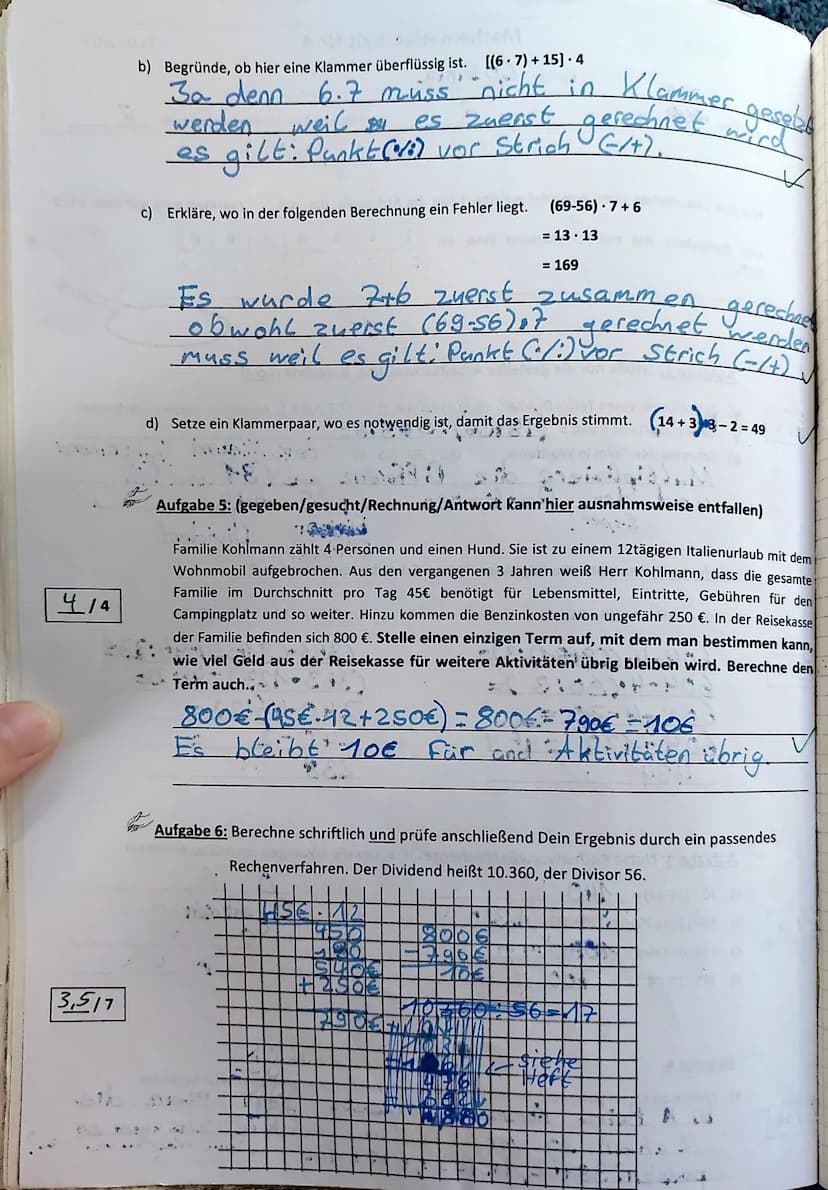 b) Begründe, ob hier eine Klammer überflüssig ist. [(6 · 7) + 15] · 4
Ja denn 6.7 muss nicht in Klammer gesetzt
werden weil es zuerst gerechnet wird
es gilt: Punkt(·/:) vor Strich (-/+).
c) Erkläre, wo in der folgenden Berechnung ein Fehler liegt. (69-56) · 7 + 6
= 13 · 13
= 169
Es wurde 7+6 zuerst zusammen gerechnet
obwohl zuerst (69-56)·7 gerechnet werden
muss weil es gilt: Punkt (·/:) vor Strich (-/+)
d) Setze ein Klammerpaar, wo es notwendig ist, damit das Ergebnis stimmt. (14 + 3)·3 – 2 = 49
Aufgabe 5: (gegeben/gesucht/Rechnung/Antwort kann hier ausnahmsweise entfallen)
Familie Kohlmann zählt 4 Personen und einen Hund. Sie ist zu einem 12tägigen Italienurlaub mit dem
Wohnmobil aufgebrochen. Aus den vergangenen 3 Jahren weiß Herr Kohlmann, dass die gesamte
4/4 Familie im Durchschnitt pro Tag 45€ benötigt für Lebensmittel, Eintritte, Gebühren für den
Campingplatz und so weiter. Hinzu kommen die Benzinkosten von ungefähr 250 €. In der Reisekasse
der Familie befinden sich 800 €. Stelle einen einzigen Term auf, mit dem man bestimmen kann,
wie viel Geld aus der Reisekasse für weitere Aktivitäten übrig bleiben wird. Berechne den
Term auch.
800€-(45€·12+250€) = 800€-790€ = 10€
Es bleibt 10€ für and Aktivitäten übrig.
Aufgabe 6: Berechne schriftlich und prüfe anschließend Dein Ergebnis durch ein passendes
Rechenverfahren. Der Dividend heißt 10.360, der Divisor 56.
45€·12
450 800€
-790€
540€ 10€
3,5/7 +250€
10360:56=17
790€
siehe
Heft